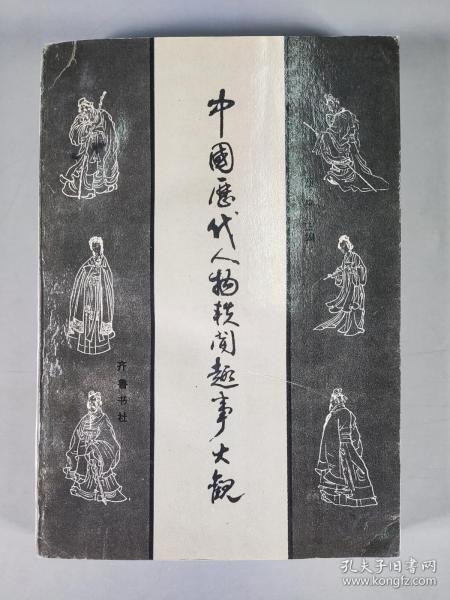 中國歷代人物軼聞趣事大觀
齐鲁书社
孔夫子旧书网
www.kongfz.com